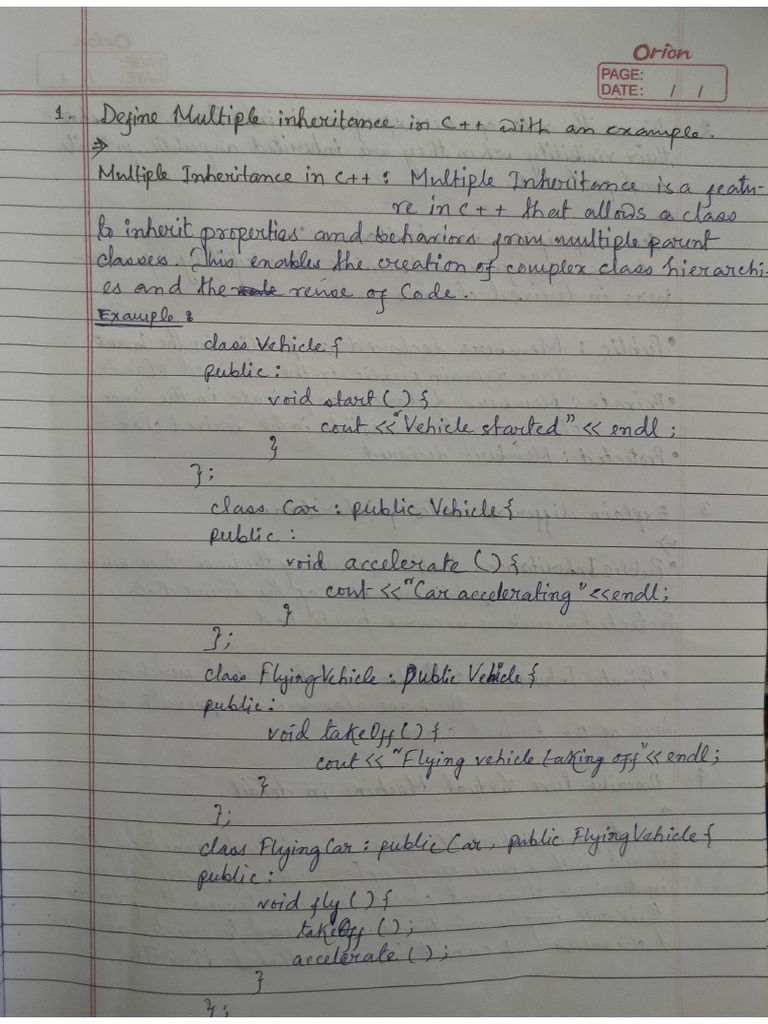 Orion
PAGE:
DATE: / /
1. Define Multiple inheritance in C++ with an example.
⇒
Multiple Inheritance in C++ : Multiple Inheritance is a featu-
re in C++ that allows a class
to inherit properties and behaviors from multiple parent
classes. This enables the creation of complex class hierarchi-
es and the reuse of Code.
Example :
class Vehicle {
public :
void start ( ) {
cout << "Vehicle started" << endl ;
}
};
class Car : public Vehicle {
public :
void accelerate ( ) {
cout << "Car accelerating" << endl ;
}
};
class FlyingVehicle : public Vehicle {
public :
void takeOff ( ) {
cout << "Flying vehicle taking off" << endl ;
}
};
class FlyingCar : public Car , public FlyingVehicle {
public :
void fly ( ) {
takeOff ( ) ;
accelerate ( ) ;
}
};